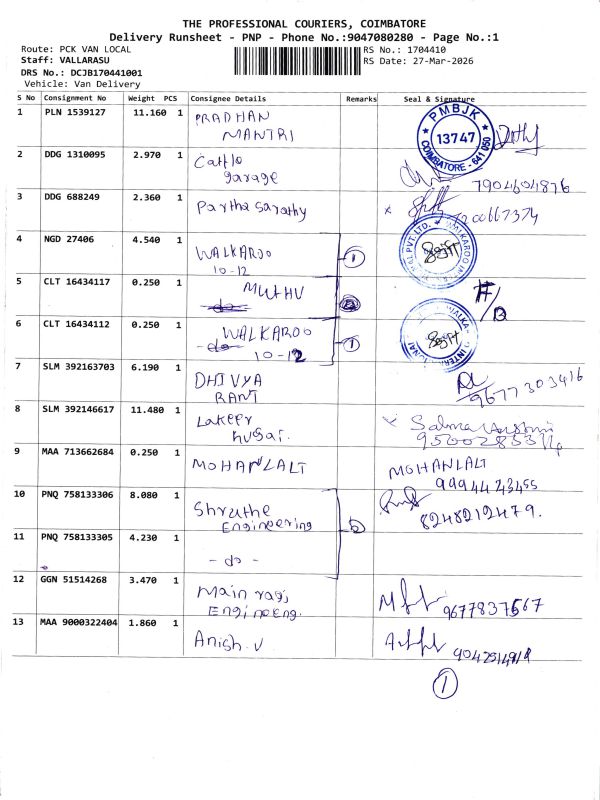 THE PROFESSIONAL COURIERS, COIMBATORE
Delivery Runsheet - PNP - Phone No.:9047080280 - Page No.:1
Route: PCK VAN LOCAL
RS No.: 1704410
Staff: VALLARASU
RS Date: 27-Mar-2026
DRS No.: DCJB170441001
Vehicle: Van Delivery
S No Consignment No Weight PCS Consignee Details Remarks Seal & Signature
1 PLN 1539127 11.160 1 PRADHAN
MANTRI
PMBJK
13747
COIMBATORE - 641 050
2 DDG 1310095 2.970 1 Cattlo
garage
7904604876
3 DDG 688249 2.360 1 Partha Sarathy
x
4 NGD 27406 4.540 1 WALKAROO
10-12
1
5 CLT 16434117 0.250 1 MUTHU
6 CLT 16434112 0.250 1 WALKAROO
-do-
10-12
1
7 SLM 392163703 6.190 1 DHIVYA
RANI
9677303416
8 SLM 392146617 11.480 1 Lakeer
husai.
x
9 MAA 713662684 0.250 1 MOHANLALT
MOHANLALT
9994423455
10 PNQ 758133306 8.080 1 Shruthe
Engineering
8248212479.
11 PNQ 758133305 4.230 1
- do -
12 GGN 51514268 3.470 1 Main rag,
Engineeng.
9677837567
13 MAA 9000322404 1.860 1 Anish.V
1